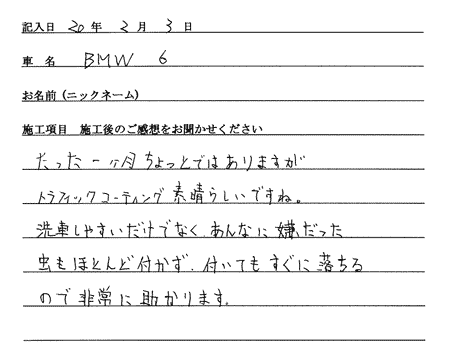 記入日 20 年 2 月 3 日
車 名 BMW 6
お名前 (ニックネーム)
施工項目 施工後のご感想をお聞かせください
たった一ヶ月ちょっとではありますが
トラフィックコーティング素晴らしいですね。
洗車しやすいだけでなく、あんなに嫌だった
虫もほとんど付かず、付いてもすぐに落ちる
ので非常に助かります。